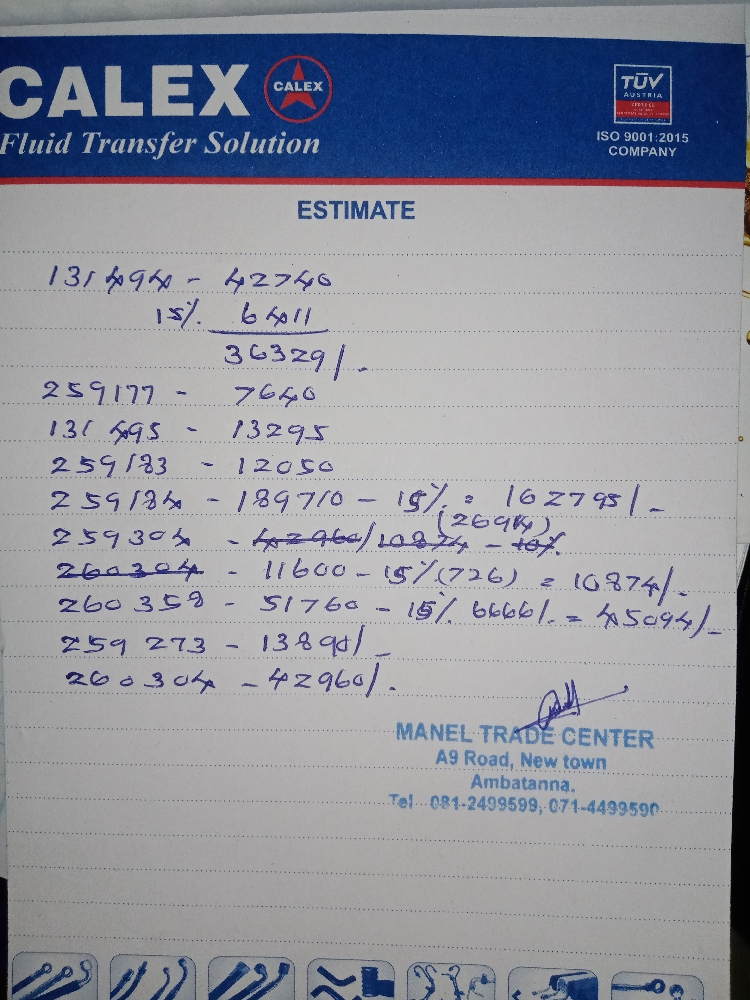 CALEX
CALEX
Fluid Transfer Solution
TÜV
AUSTRIA
ISO 9001:2015
COMPANY
ESTIMATE
131494 - 42740
15% 6411
36329/-
259177 - 7640
131495 - 13295
259183 - 12050
259184 - 189710 - 15% = 162795/-
(26914)
259304 - 42960/10874 - 10%
260304 - 11600 - 15% (726) = 10874/-
260358 - 51760 - 15% 6666/. = 45094/-
259273 - 13890/-
260304 - 42960/.
MANEL TRADE CENTER
A9 Road, New town
Ambatanna.
Tel 081-2499599, 071-4499590